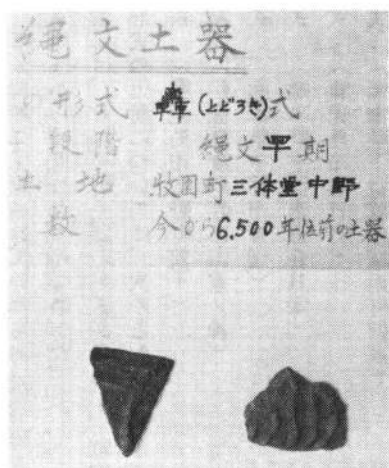 縄文土器
形式 轟(とどろき)式
段階 縄文早期
土地 牧園町三体堂中野
数 今から6,500年位前の土器